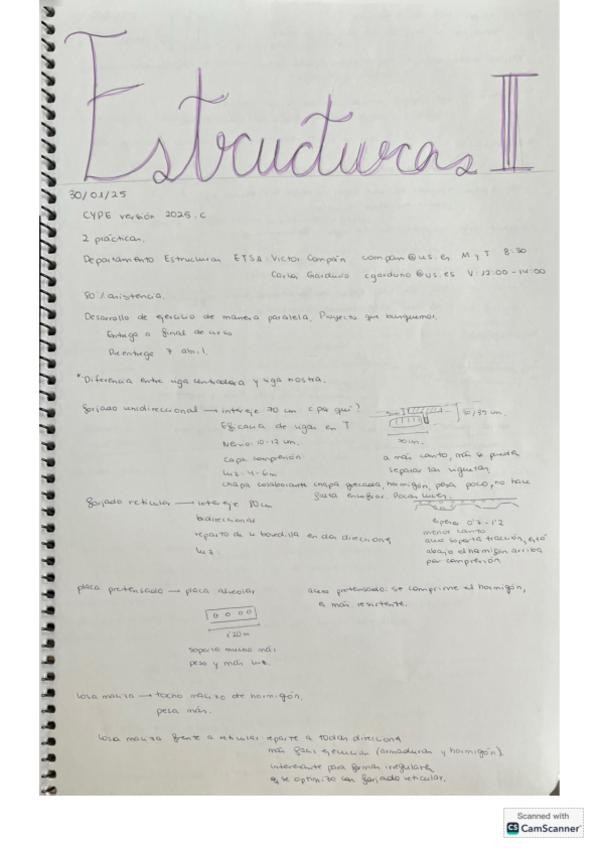 Estructuras II
30/01/25
CYPE versión 2025.c
2 prácticas.
Departamento Estructuras ETSA: Victor Compán compan@us.es M y T 8:30
Carlos Garduño cgarduno@us.es V: 12:00-14:00
80% asistencia.
Desarrollo de ejercicio de manera paralela. Proyecto que busquemos.
Entrega a final de curso
Preentrega 7 abril.
*Diferencia entre viga centradora y viga riostra.
forjado unidireccional → intereje 70 cm ¿por qué?
30/35 cm.
70 cm.
Eficacia de vigas en T
Nervio: 10-12 cm.
capa compresión:
a más canto, más se pueden
luz: 4-6m
separar las viguetas
chapa colaborante chapa grecada, hormigón, pesa poco, no hace
falta encofrar. Pocas luces.
forjado reticular → intereje 80cm
bidireccional
espesor 0'7-1'2
menor canto
reparto de la bovedilla en dos direcciones
acero soporta tracción, está
luz:
abajo el hormigón arriba
por compresión.
placa pretensado → placa alveolar
acero pretensado: se comprime el hormigón,
es más resistente.
1'20 m
soporta mucho más
peso y más luz.
losa maciza → tocho macizo de hormigón,
pesa más.
losa maciza frente a reticular reparte a todas direcciones
más fácil ejecución (armaduras y hormigón).
interesante para formas irregulares
se optimiza con forjado reticular.
Scanned with
CS CamScanner